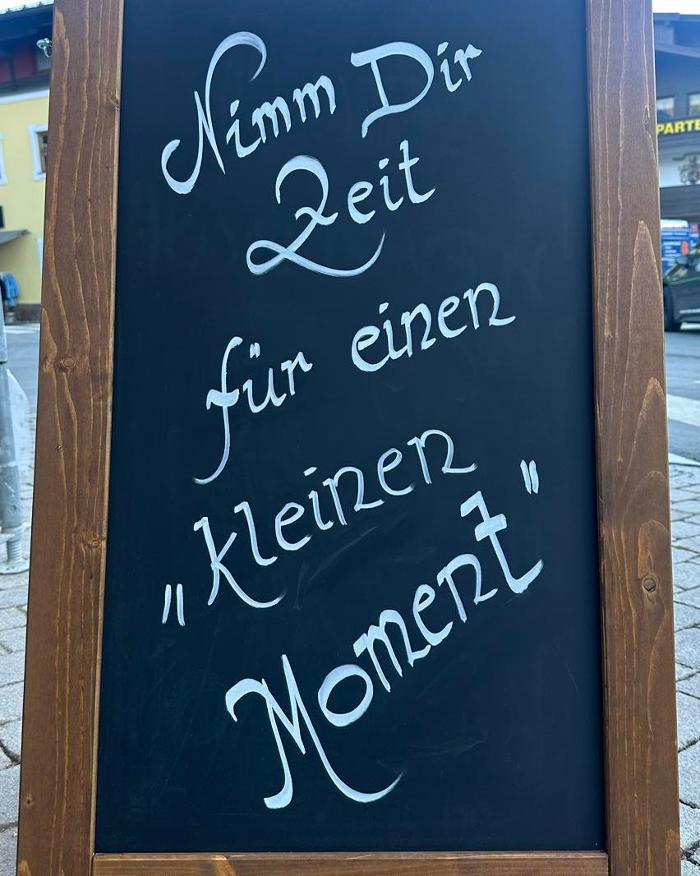 Nimm Dir
Zeit
für einen
„kleinen
Moment"
PARTE